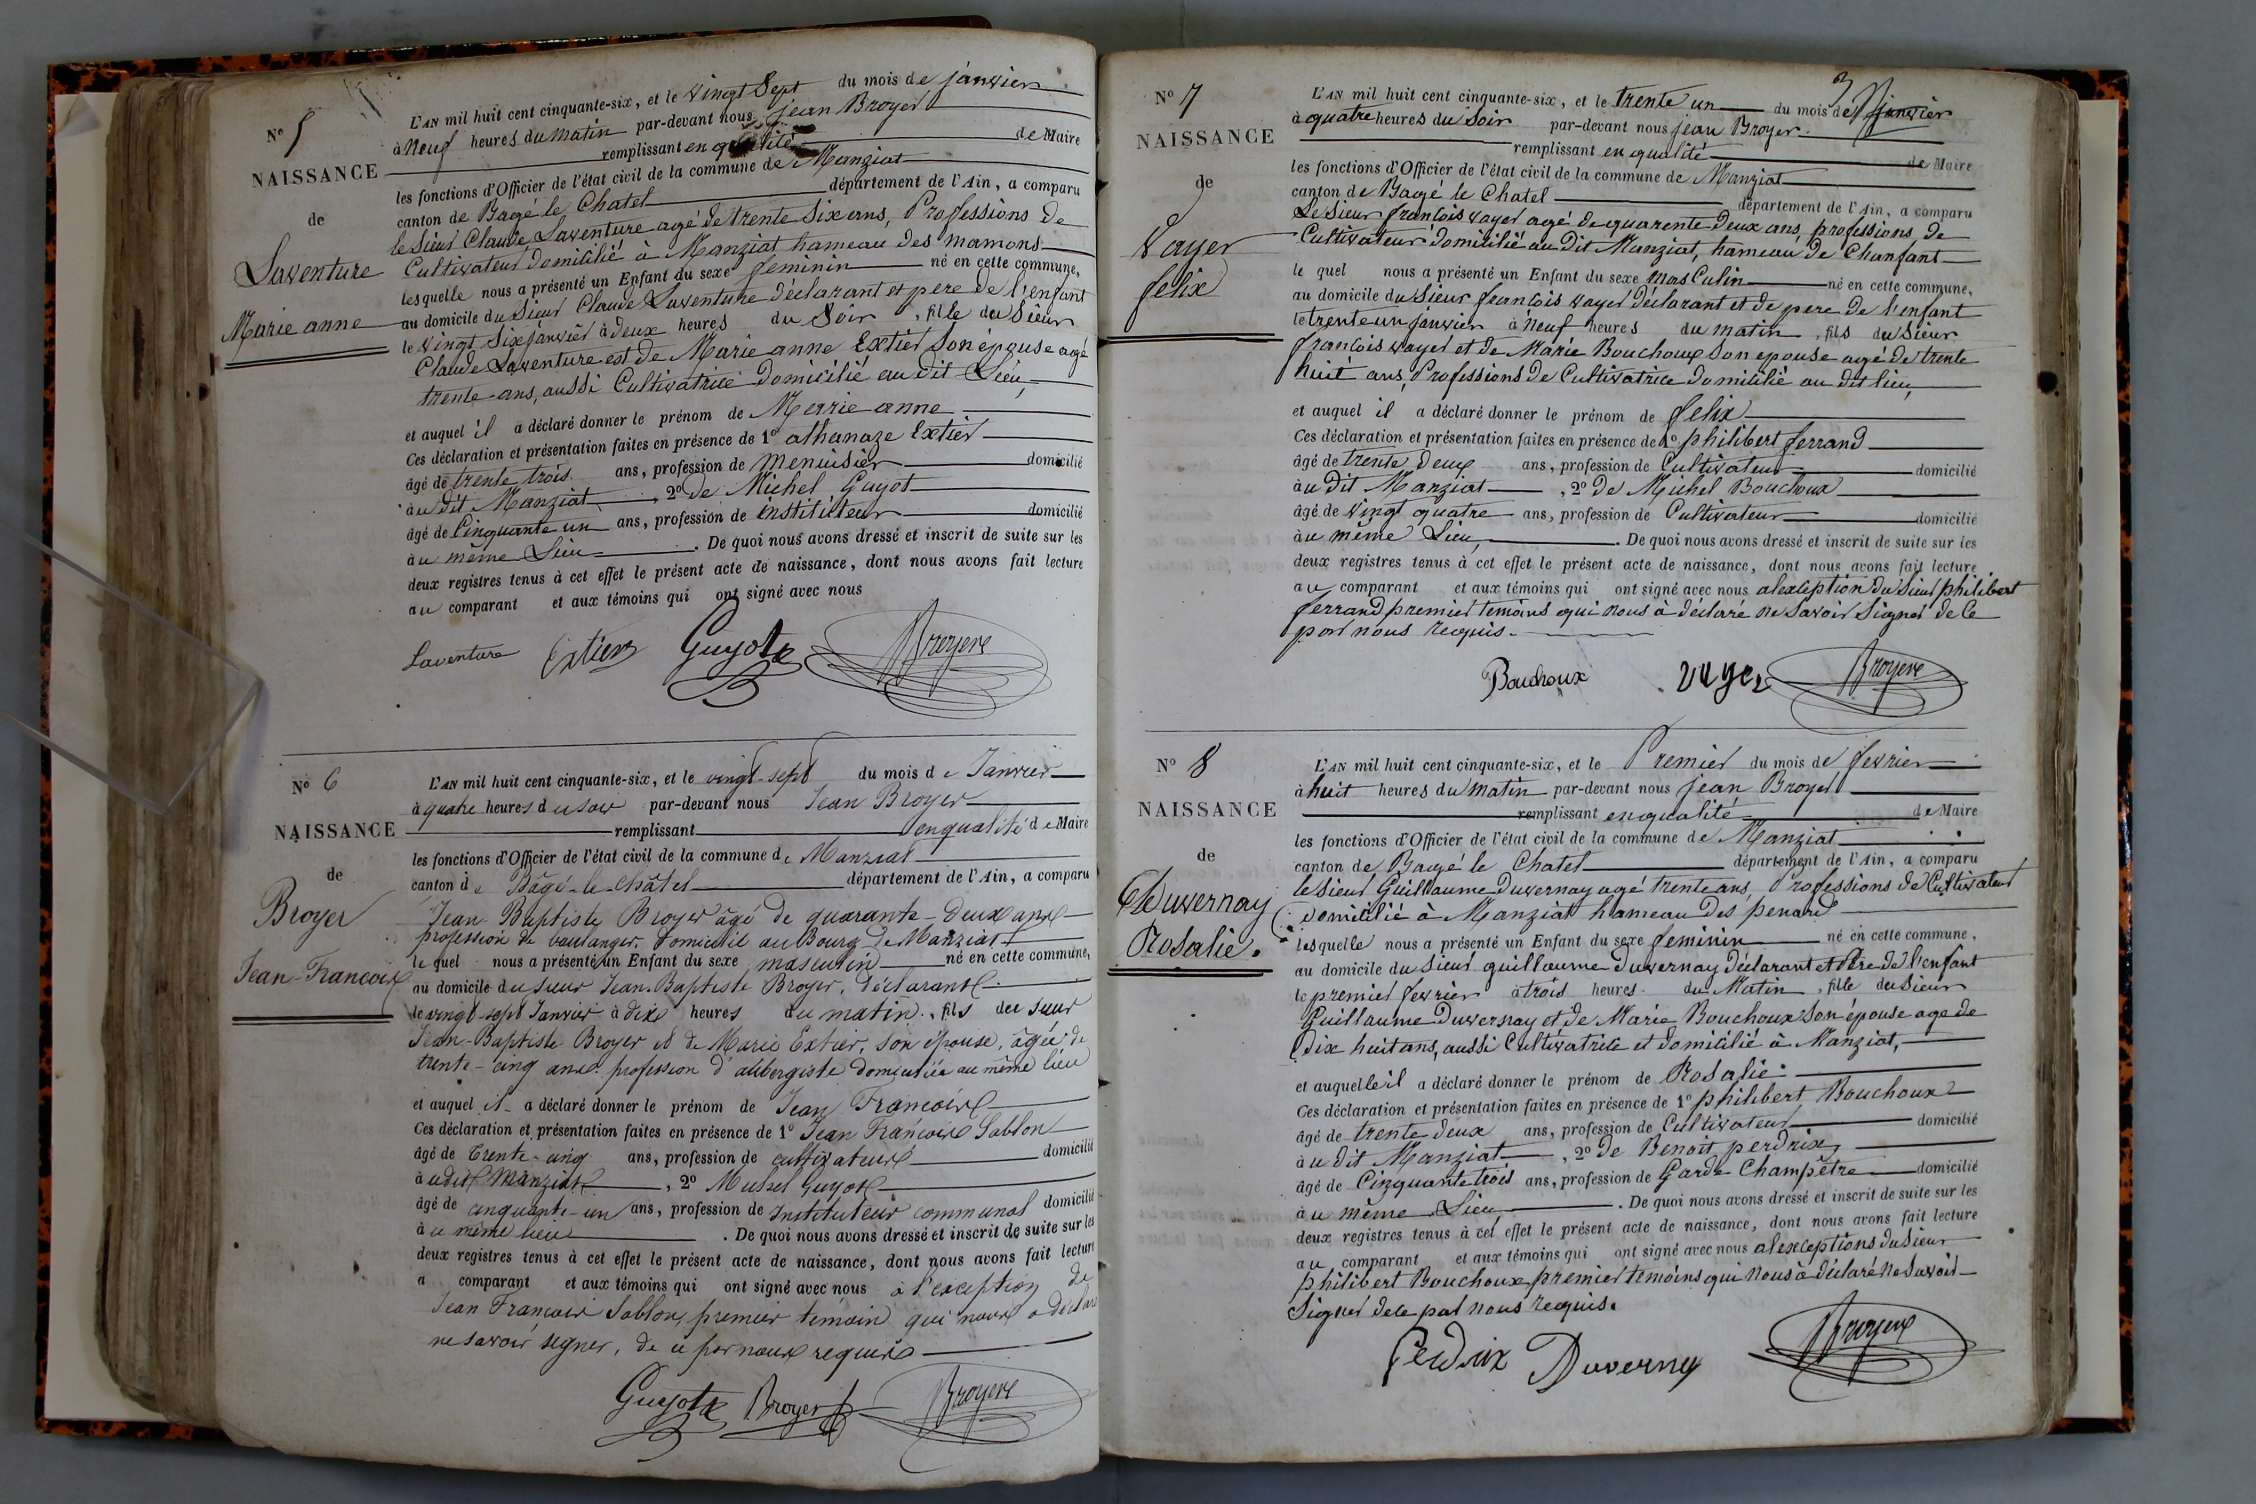 N° 5
NAISSANCE
de
Laventure
Marie anne
L'AN mil huit cent cinquante-six, et le vingt Sept du mois de janvier
à Neuf heures du matin par-devant nous jean Broyer
remplissant en qualité de Maire
les fonctions d'Officier de l'état civil de la commune de Manziat
canton de Bagé le Chatel département de l'Ain, a comparu
le Sieur Claude Laventure agé de trente Six ans, Professions de
Cultivateur domicilié à Manziat hameau des mamons
lesquelle nous a présenté un Enfant du sexe feminin né en cette commune,
au domicile du Sieur Claude Laventure déclarant et pere de l'enfant
le vingt Six janvier à deux heures du Soir, fille du Sieur
Claude Laventure est de Marie anne Extier Son épouse agé
trente ans, aussi Cultivatrice Domicilié au dit Lieu,
et auquel il a déclaré donner le prénom de Marie anne
Ces déclaration et présentation faites en présence de 1° athanaze Extier
âgé de trente trois ans, profession de menuisier domicilié
à u dit Manziat, 2° de Michel Guyot
âgé de Cinquante un ans, profession de instituteur domicilié
à u même Lieu. De quoi nous avons dressé et inscrit de suite sur les
deux registres tenus à cet effet le présent acte de naissance, dont nous avons fait lecture
au comparant et aux témoins qui ont signé avec nous
Laventure Extier Guyot Broyer
N° 6
NAISSANCE
de
Broyer
Jean-Francois
L'AN mil huit cent cinquante-six, et le vingt-sept du mois de Janvier
à quatre heures du soir par-devant nous Jean Broyer
remplissant en qualité de Maire
les fonctions d'Officier de l'état civil de la commune de Manziat
canton de Bâgé-le-Châtel département de l'Ain, a comparu
Jean Baptiste Broyer âgé de quarante-deux ans
profession de boulanger, domicilié au Bourg de Manziat
le quel nous a présenté un Enfant du sexe masculin né en cette commune,
au domicile du sieur Jean-Baptiste Broyer, déclarant
le vingt-sept Janvier à dix heures du matin, fils du sieur
Jean-Baptiste Broyer et de Marie Extier, son épouse, âgée de
trente-cinq ans profession d'aubergiste domiciliée au même lieu
et auquel il a déclaré donner le prénom de Jean Francois
Ces déclaration et présentation faites en présence de 1° Jean Francois Sablon
âgé de Trente-cinq ans, profession de cultivateur domicilié
à udit Manziat, 2° Michel Guyot
âgé de cinquante-un ans, profession de Instituteur communal domicilié
à u même lieu. De quoi nous avons dressé et inscrit de suite sur les
deux registres tenus à cet effet le présent acte de naissance, dont nous avons fait lecture
a comparant et aux témoins qui ont signé avec nous à l'exception de
Jean Francois Sablon, premier témoin qui nous a déclaré
ne savoir signer, de ce par nous requis
Guyot Broyer Broyer
3
N° 7
NAISSANCE
de
Vayer
felix
L'AN mil huit cent cinquante-six, et le trente un du mois de janvier
à quatre heures du Soir par-devant nous jean Broyer
remplissant en qualité de Maire
les fonctions d'Officier de l'état civil de la commune de Manziat
canton de Bagé le Chatel département de l'Ain, a comparu
Le Sieur francois vayer agé de quarente deux ans, professions de
Cultivateur domicilié au dit Manziat, hameau de Chanfant
le quel nous a présenté un Enfant du sexe masCulin né en cette commune,
au domicile du Sieur francois vayer déclarant et de pere de l'enfant
le trente un janvier à Neuf heures du matin, fils du Sieur
francois vayer et de Marie Bouchoux Son epouse agé de trente
huit ans, Professions de Cultivatrice domicilié au dit lieu,
et auquel il a déclaré donner le prénom de felix
Ces déclaration et présentation faites en présence de 1° philibert ferrand
âgé de trente deux ans, profession de Cultivateur domicilié
à u dit Manziat, 2° de Michel Bouchoux
âgé de vingt quatre ans, profession de Cultivateur domicilié
à u même Lieu,. De quoi nous avons dressé et inscrit de suite sur les
deux registres tenus à cet effet le présent acte de naissance, dont nous avons fait lecture
au comparant et aux témoins qui ont signé avec nous alexception du Sieur philibert
ferrand premier temoins qui nous à déclaré ne Savoir Signer de Ce
par nous requis.
Bouchoux vayer Broyer
N° 8
NAISSANCE
de
Duvernay
Rosalie.
L'AN mil huit cent cinquante-six, et le Premier du mois de fevrier
à huit heures du matin par-devant nous jean Broyer
remplissant en qualité de Maire
les fonctions d'Officier de l'état civil de la commune de Manziat
canton de Baugé le Chatel département de l'Ain, a comparu
le Sieur Guillaume Duvernay agé trente ans, Professions de Cultivateur
domicilié à Manziat hameau Des penard
lesquelle nous a présenté un Enfant du sexe feminin né en cette commune,
au domicile du Sieur guillaume Duvernay déclarant et Père de l'enfant
le premier fevrier à trois heures du Matin, fille du Sieur
Guillaume Duvernay et de Marie Bouchoux Son épouse age de
Dix huit ans, aussi Cultivatrice et domicilié à Manziat,
et auquelle il a déclaré donner le prénom de Rosalie.
Ces déclaration et présentation faites en présence de 1° philibert Bouchoux
âgé de trente deux ans, profession de Cultivateur domicilié
à u dit Manziat, 2° de Benoit perdrix,
âgé de Cinquante trois ans, profession de Garde Champêtre domicilié
à u même Lieu. De quoi nous avons dressé et inscrit de suite sur les
deux registres tenus à cet effet le présent acte de naissance, dont nous avons fait lecture
au comparant et aux témoins qui ont signé avec nous alexceptions du Sieur
philibert Bouchoux premier temoins qui nous à déclaré ne Savoir
Signer de ce par nous requis.
Perdrix Duverny Broyer